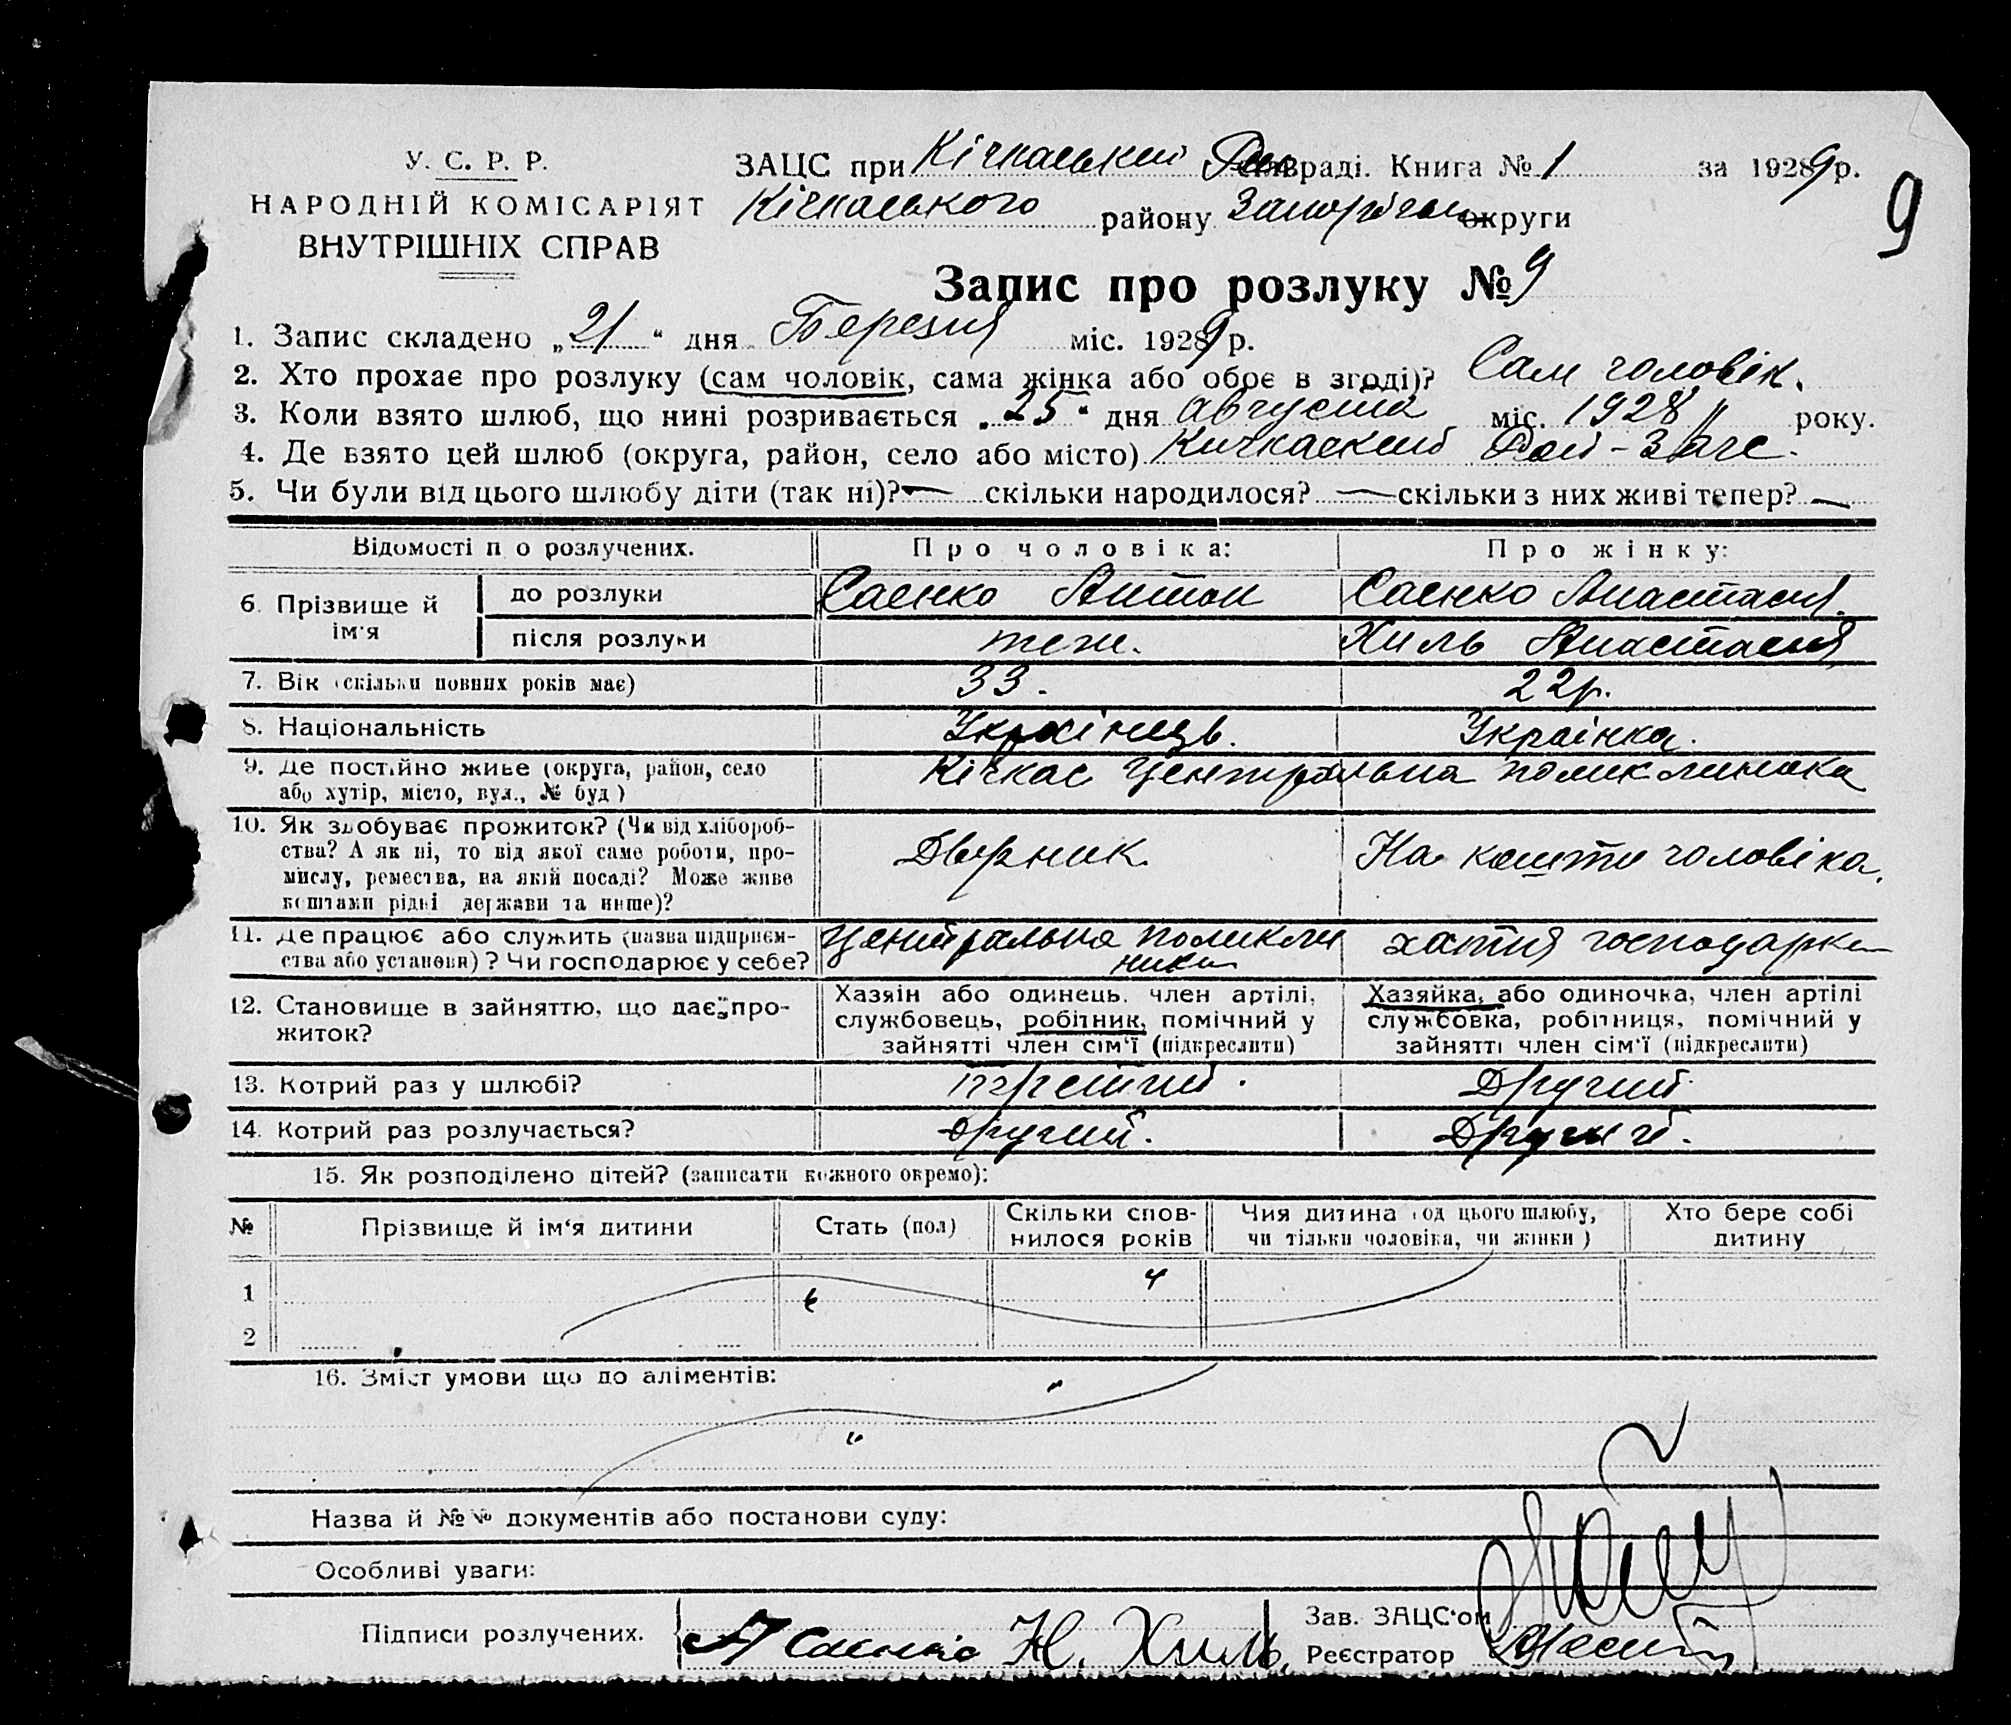 У. С. Р. Р.
НАРОДНІЙ КОМІСАРІЯТ
ВНУТРІШНІХ СПРАВ
ЗАЦС при Кічкаський Рай Книга № 1 за 1929 р.
Кічкаського району Запоріжськ округи
9
Запис про розлуку № 9
1. Запис складено „21“ дня Березня міс. 1929 р.
2. Хто прохає про розлуку (сам чоловік, сама жінка або обоє в згоді)? Сам чоловік.
3. Коли взято шлюб, що нині розривається „25“ дня августа міс. 1928 року.
4. Де взято цей шлюб (округа, район, село або місто) Кичкаский Рай-Загс.
5. Чи були від цього шлюбу діти (так ні)? — скільки народилося? — скільки з них живі тепер? —
Відомості п о розлучених. Про чоловіка: Про жінку:
6. Прізвище й ім'я до розлуки Саенко Антон Саенко Анастасия.
після розлуки теж. Хиль Анастасия
7. Вік (скільки повних років має) 33. 22 р.
8. Національність Українець. Українка.
9. Де постійно живе (округа, район, село або хутір, місто, вул., № буд) Кічкас Центральна поликлиника
10. Як здобуває прожиток? (Чи від хлібороб-
ства? А як ні, то від якої саме роботи, про-
мислу, ремества, на якій посаді? Може живе
коштами рідні держави та инше)? Дворник На кошти чоловіка.
11. Де працює або служить (назва підприєм-
ства або установи)? Чи господарює у себе? Центральна поликли
ника хатня господарка
12. Становище в зайняттю, що дає про-
житок?
Хазяін або одинець, член артілі,
службовець, робітник, помічний у
зайнятті член сім'ї (підкреслити)
Хазяйка, або одиночка, член артілі
службовка, робітниця, помічний у
зайнятті член сім'ї (підкреслити)
13. Котрий раз у шлюбі? Другий.
14. Котрий раз розлучається? другий. Другий.
15. Як розподілено дітей? (записати кожного окремо):
№ Прізвище й ім'я дитини Стать (пол) Скільки спов-
нилося років Чия дитина (од цього шлюбу,
чи тільки чоловіка, чи жінки) Хто бере собі
дитину
1
2
16. Зміст умови що до аліментів:
Назва й №№ документів або постанови суду:
Особливі уваги:
Підписи розлучених. А Саенко Н. Хиль.
Зав. ЗАЦС'ом
Реєстратор